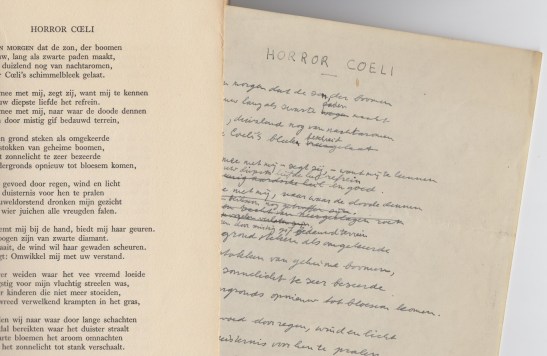 HORROR CŒLI
MORGEN dat de zon, der boomen
lang als zwarte paden maakt,
duizlend nog van nachtaromen,
Cœli's schimmelbleek gelaat.
mee met mij, zegt zij, want mij te kennen
diepst liefde het refrein.
mee met mij, naar waar de doode dennen
door mistig gif bedauwd terrein,
grond steken als omgekeerde
stokken van geheime boomen,
zonnelicht te zeer bezeerde
dergronds opnieuw tot bloesem komen,
gevoed door regen, wind en licht
duisternis voor hen te pralen
dorstend dronken mijn gezicht
wier juichen alle vreugden falen.
emt mij bij de hand, biedt mij haar geuren.
oogen zijn van zwarte diamant.
aait, de wind wil haar gewaden scheuren.
gt: Omwikkel mij met uw verstand.
weiden waar het vee vreemd loeide
gstig voor mijn vluchtig streelen was,
er kinderen die niet meer stoeiden,
wreed verwelkend krampten in het gras,
en wij naar waar door lange schachten
dal bereikten waar het duister straalt
arte bloemen het aroom omnachten
het zonnelicht tot stank verschaalt.
HORROR COELI
morgen dat de zon der boomen
lang als zwarte maakt
, duizlend nog van nachtaromen
Coeli's
mee met mij – zegt zij – want mij te kennen
en goud
mee met mij, naar waar de doode dennen
bedauwd terrein
grond steken als omgekeerde
stokken van geheime boomen,
zonnelicht te zeer bezeerde
ergronds opnieuw tot bloesem komen.
voed door regen, wind en licht
duisternis voor hen te pralen